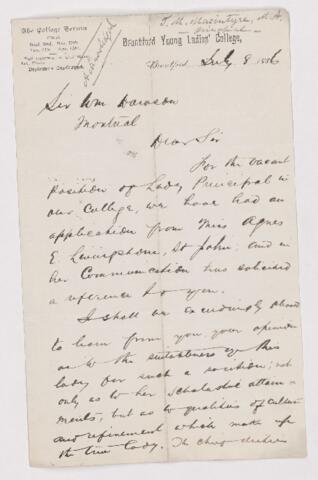 The College Terms
T. M. Macintyre, M.A.
Principal
Brantford
Brantford Young Ladies' College,
Brantford, July 8 1886
Sir Wm Dawson
Montreal
Dear Sir
For the vacant
position of Lady Principal in
our College, we have had an
application from Miss Agnes
E. Livingstone, St John, and in
her Communication has solicited
a reference to you.
I shall be exceedingly pleased
to learn from you your opinion
as to the suitableness of this
lady for such a position; not
only as to her scholastic attain-
ments, but as to qualities of culture
and refinement which make up
the true lady. The chief duties